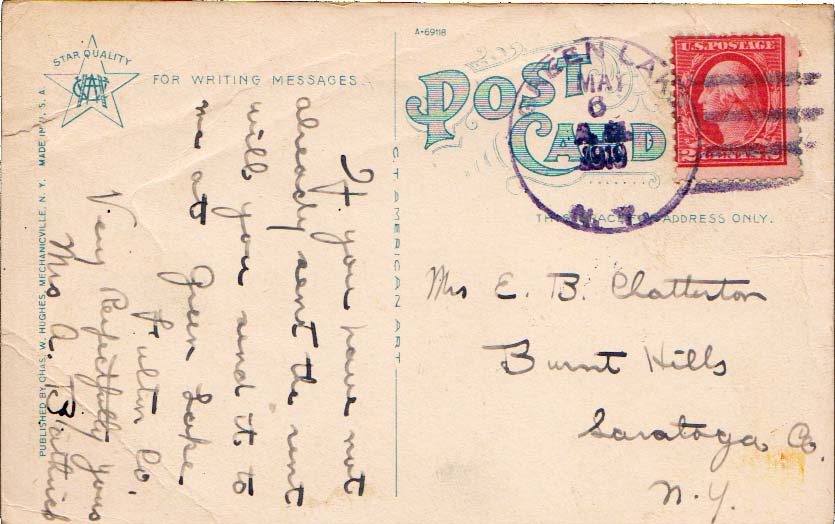 A-69118
STAR QUALITY
FOR WRITING MESSAGES.
POST
CARD
THIS SPACE FOR ADDRESS ONLY.
U.S. POSTAGE
2 CENTS 2
GREEN LAKE
MAY
6
A.M.
1919
N.Y.
C.T. AMERICAN ART
PUBLISHED BY CHAS. W. HUGHES, MECHANICVILLE, N. Y. MADE IN U. S. A.
If you have not
already sent the rent
will you send it to
me at Green Lake
Fulton Co.
Very Respectfully yours
Mrs A.
Mrs E. B. Chatterton
Burnt Hills
Saratoga Co.
N.Y.